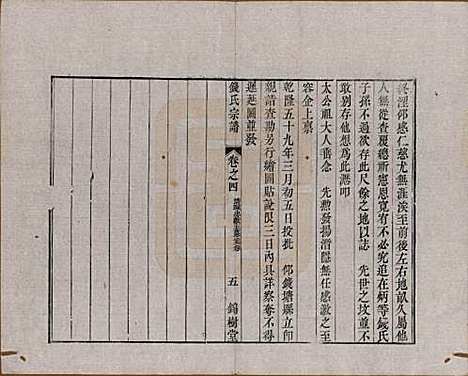 終淫仰感仁慈尤無涯涘至前後左右地畝久屬他
人無從查覆總斯憲恩寬宥不必究追在炳等錢氏
子孫不過欲存此尺壤餘之地以誌 先世之坟並不
敢別存他想爲此瀝叩
太公祖大人垂念 先勲發揚潛隱無任感激之至
容企上稟
乾隆五十九年三月初五日投批 仰錢塘縣立即
親詣查勘另行繪圖貼說限三日內具詳察奪不得
遲延圖並發
錢氏宗譜
卷之四
五
錦樹堂